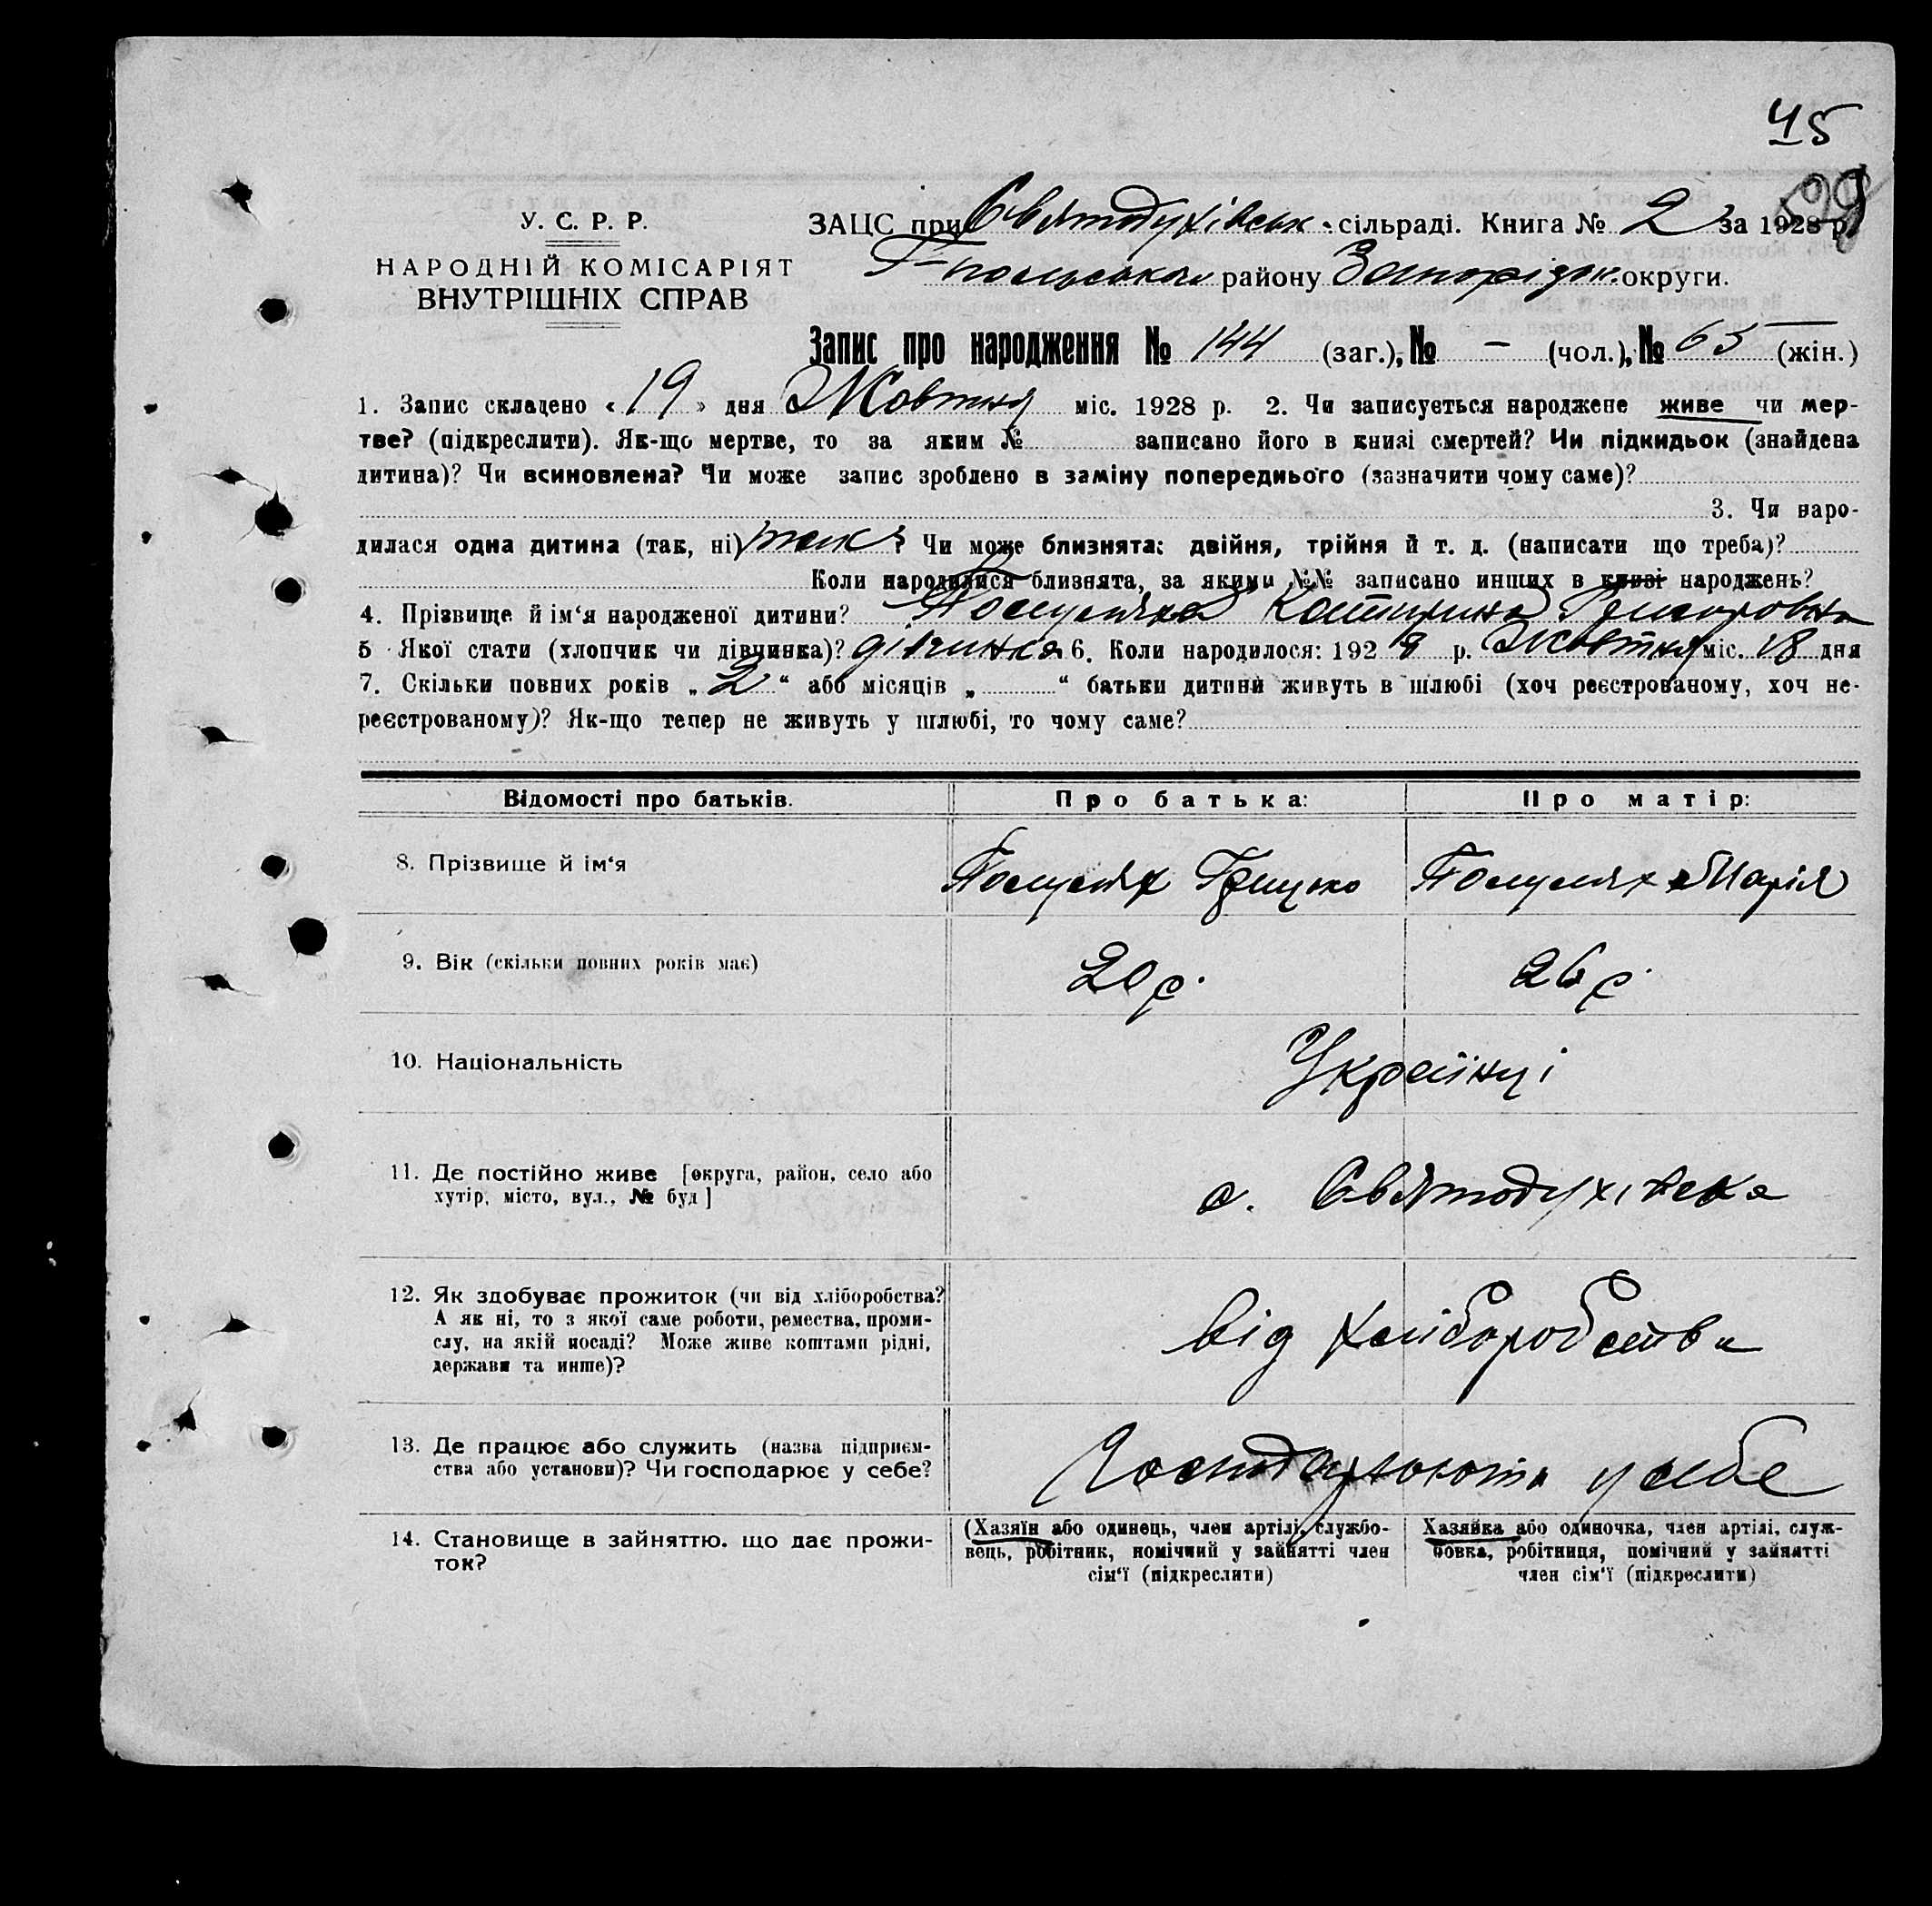 45
У. С. Р. Р.
НАРОДНІЙ КОМІСАРІЯТ
ВНУТРІШНІХ СПРАВ
ЗАЦС при Святодухівськ. сільраді. Книга № 2 за 1928 р.
району Запоріжк. округи.
Запис про народження № 144 (заг.), № – (чол.), № 65 (жін.)
1. Запис складено « 19 » дня Жовтня міс. 1928 р. 2. Чи записується народжене живе чи мер-
тве? (підкреслити). Як-що мертве, то за яким № записано його в книзі смертей? Чи підкидьок (знайдена
дитина)? Чи всиновлена? Чи може запис зроблено в заміну попереднього (зазначити чому саме)?
3. Чи наро-
дилася одна дитина (так, ні) так ? Чи може близнята: двійня, трійня й т. д. (написати що треба)?
Коли народилися близнята, за якими №№ записано инших в книзі народжень?
4. Прізвище й ім'я народженої дитини? Катерина Григоровна
5 Якої стати (хлопчик чи дівчинка)? дівчинка 6. Коли народилося: 1928 р. Жовтня міс. 18 дня
7. Скільки повних років „ 2 “ або місяців „ “ батьки дитини живуть в шлюбі (хоч реєстрованому, хоч не-
реєстрованому)? Як-що тепер не живуть у шлюбі, то чому саме?
Відомості про батьків. Про батька: Про матір:
8. Прізвище й ім'я Грицько Марія
9. Вік (скільки повних років має) 20 р. 26 р.
10. Національність Українці
11. Де постійно живе [округа, район, село або
хутір, місто, вул., № буд] с. Святодухівка
12. Як здобуває прожиток (чи від хліборобства?
А як ні, то з якої саме роботи, ремества, проми-
слу, на якій посаді? Може живе коштами рідні,
держави та инше)? від хліборобства
13. Де працює або служить (назва підприєм-
ства або установи)? Чи господарює у себе? Господарюють у себе
14. Становище в зайняттю. що дає прожи-
ток?
(Хазяїн або одинець, член артілі, службо-
вець, робітник, помічний у зайнятті член
сім'ї (підкреслити)
Хазяйка або одиночка, член артілі, служ-
бовка, робітниця, помічний у зайнятті
член сім'ї (підкреслити)